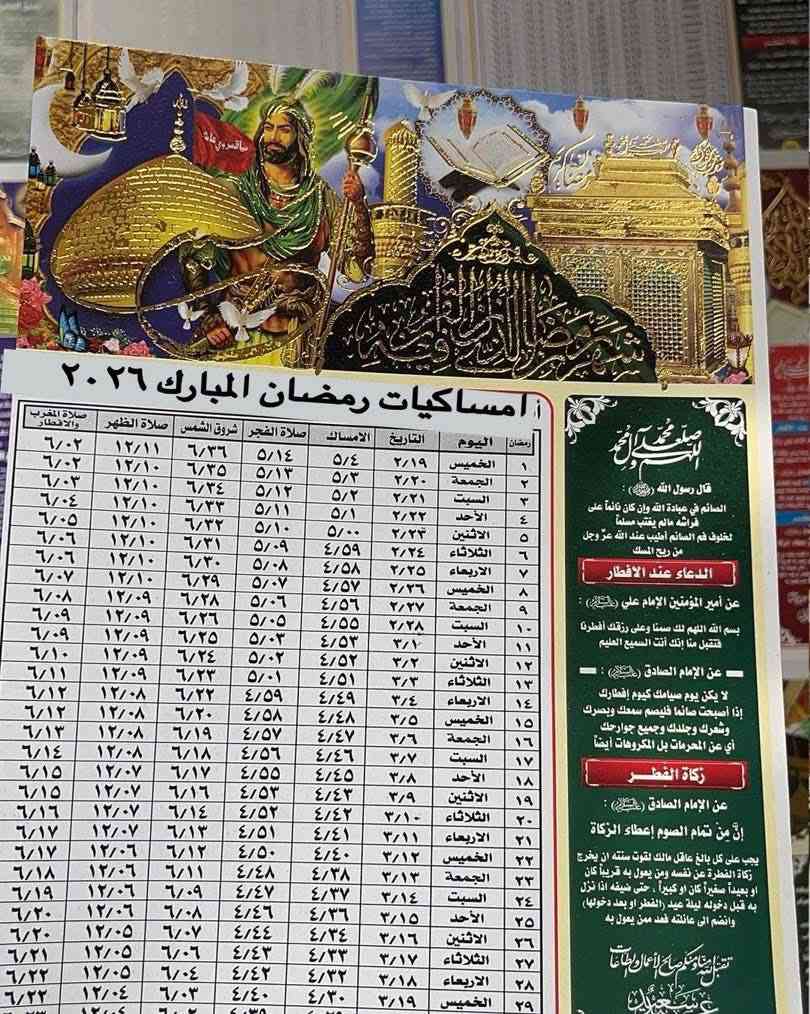 امساكيات رمضان المبارك ٢٠٢٦
رمضان اليوم التاريخ الامساك صلاة الفجر شروق الشمس صلاة الظهر صلاة المغرب والافطار
١ الخميس ٢/١٩ ٥/٤ ٥/١٤ ٦/٣٦ ١٢/١١ ٦/٠٢
٢ الجمعة ٢/٢٠ ٥/٣ ٥/١٣ ٦/٣٥ ١٢/١٠ ٦/٠٢
٣ السبت ٢/٢١ ٥/٢ ٥/١٢ ٦/٣٤ ١٢/١٠ ٦/٠٣
٤ الأحد ٢/٢٢ ٥/١ ٥/١١ ٦/٣٣ ١٢/١٠ ٦/٠٤
٥ الاثنين ٢/٢٣ ٥/٠٠ ٥/١٠ ٦/٣٢ ١٢/١٠ ٦/٠٥
٦ الثلاثاء ٢/٢٤ ٤/٥٩ ٥/٠٩ ٦/٣١ ١٢/١٠ ٦/٠٦
٧ الاربعاء ٢/٢٥ ٤/٥٨ ٥/٠٨ ٦/٣٠ ١٢/١٠ ٦/٠٦
٨ الخميس ٢/٢٦ ٤/٥٧ ٥/٠٧ ٦/٢٩ ١٢/١٠ ٦/٠٧
٩ الجمعة ٢/٢٧ ٤/٥٦ ٥/٠٦ ٦/٢٨ ١٢/٠٩ ٦/٠٨
١٠ السبت ٢/٢٨ ٤/٥٥ ٥/٠٥ ٦/٢٦ ١٢/٠٩ ٦/٠٩
١١ الأحد ٣/١ ٤/٥٣ ٥/٠٣ ٦/٢٥ ١٢/٠٩ ٦/٠٩
١٢ الاثنين ٣/٢ ٤/٥٢ ٥/٠٢ ٦/٢٤ ١٢/٠٩ ٦/١٠
١٣ الثلاثاء ٣/٣ ٤/٥١ ٥/٠١ ٦/٢٣ ١٢/٠٩ ٦/١١
١٤ الاربعاء ٣/٤ ٤/٤٩ ٤/٥٩ ٦/٢٢ ١٢/٠٨ ٦/١٢
١٥ الخميس ٣/٥ ٤/٤٨ ٤/٥٨ ٦/٢٠ ١٢/٠٨ ٦/١٢
١٦ الجمعة ٣/٦ ٤/٤٧ ٤/٥٧ ٦/١٩ ١٢/٠٨ ٦/١٣
١٧ السبت ٣/٧ ٤/٤٦ ٤/٥٦ ٦/١٨ ١٢/٠٨ ٦/١٤
١٨ الأحد ٣/٨ ٤/٤٥ ٤/٥٥ ٦/١٧ ١٢/٠٧ ٦/١٥
١٩ الاثنين ٣/٩ ٤/٤٣ ٤/٥٣ ٦/١٦ ١٢/٠٧ ٦/١٥
٢٠ الثلاثاء ٣/١٠ ٤/٤٢ ٤/٥٢ ٦/١٤ ١٢/٠٧ ٦/١٦
٢١ الاربعاء ٣/١١ ٤/٤١ ٤/٥١ ٦/١٣ ١٢/٠٧ ٦/١٧
٢٢ الخميس ٣/١٢ ٤/٤٠ ٤/٥٠ ٦/١٢ ١٢/٠٦ ٦/١٧
٢٣ الجمعة ٣/١٣ ٤/٣٨ ٤/٤٨ ٦/١١ ١٢/٠٦ ٦/١٨
٢٤ السبت ٣/١٤ ٤/٣٧ ٤/٤٧ ٦/٠٩ ١٢/٠٦ ٦/١٩
٢٥ الأحد ٣/١٥ ٤/٣٦ ٤/٤٦ ٦/٠٨ ١٢/٠٦ ٦/٢٠
٢٦ الاثنين ٣/١٦ ٤/٣٤ ٤/٤٤ ٦/٠٧ ١٢/٠٥ ٦/٢٠
٢٧ الثلاثاء ٣/١٧ ٤/٣٣ ٤/٤٣ ٦/٠٦ ١٢/٠٥ ٦/٢١
٢٨ الاربعاء ٣/١٨ ٤/٣٢ ٤/٤٢ ٦/٠٤ ١٢/٠٥ ٦/٢٢
٢٩ الخميس ٣/١٩ ٤/٣٠ ٤/٤٠ ٦/٠٣ ١٢/٠٤ ٦/٢٢
اللهم صل على محمد وآل محمد
قال رسول الله (ﷺ):
الصائم في عبادة الله وإن كان نائماً على
فراشه مالم يغتب مسلماً
لخلوف فم الصائم أطيب عند الله عزّ وجل
من ريح المسك
الدعاء عند الافطار
عن أمير المؤمنين الإمام علي (عليه السلام):
بسم الله اللهم لك صمنا وعلى رزقك أفطرنا
فتقبل منا إنك أنت السميع العليم
عن الإمام الصادق (عليه السلام):
لا يكن يوم صيامك كيوم إفطارك
إذا أصبحت صائما فليصم سمعك وبصرك
وشعرك وجلدك وجميع جوارحك
أي عن المحرمات بل المكروهات أيضاً
زكاة الفطر
عن الإمام الصادق (عليه السلام):
إنّ من تمام الصوم إعطاء الزكاة
يجب على كل بالغ عاقل مالك لقوت سنته ان يخرج
زكاة الفطرة عن نفسه ومن يعول به قريباً كان
او بعيداً صغيراً كان او كبيراً ، حتى ضيفه اذا نزل
به قبل دخوله ليلة عيد (الفطر او بعد دخولها)
وانضم الى عائلته فعد ممن يعول به
تقبل الله منا ومنكم صالح الأعمال والطاعات